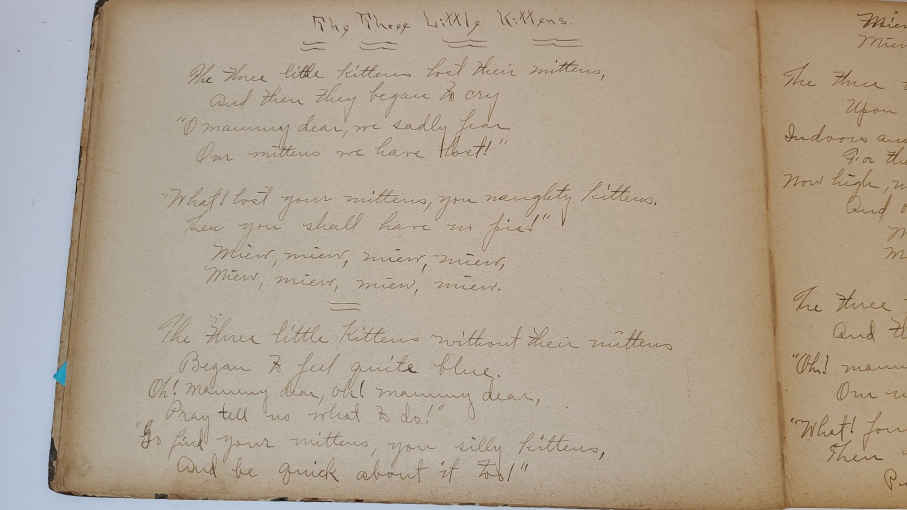 The Three Little Kittens.
The three little kittens lost their mittens,
And then they began to cry
"O mammy dear, we sadly fear
Our mittens we have lost!"
"What! lost your mittens, you naughty kittens.
Then you shall have no pie!"
Miew, miew, miew, miew,
Miew, miew, miew, miew.
The three little kittens without their mittens
Began to feel quite blue.
Oh! mammy dear, oh! mammy dear,
Pray tell us what to do!"
"Go find your mittens, you silly kittens,
And be quick about it too!"
Miew
The three
Upon
Indoors
For the
Now high,
And
The three
And
"Oh!
Our
"What!
Then